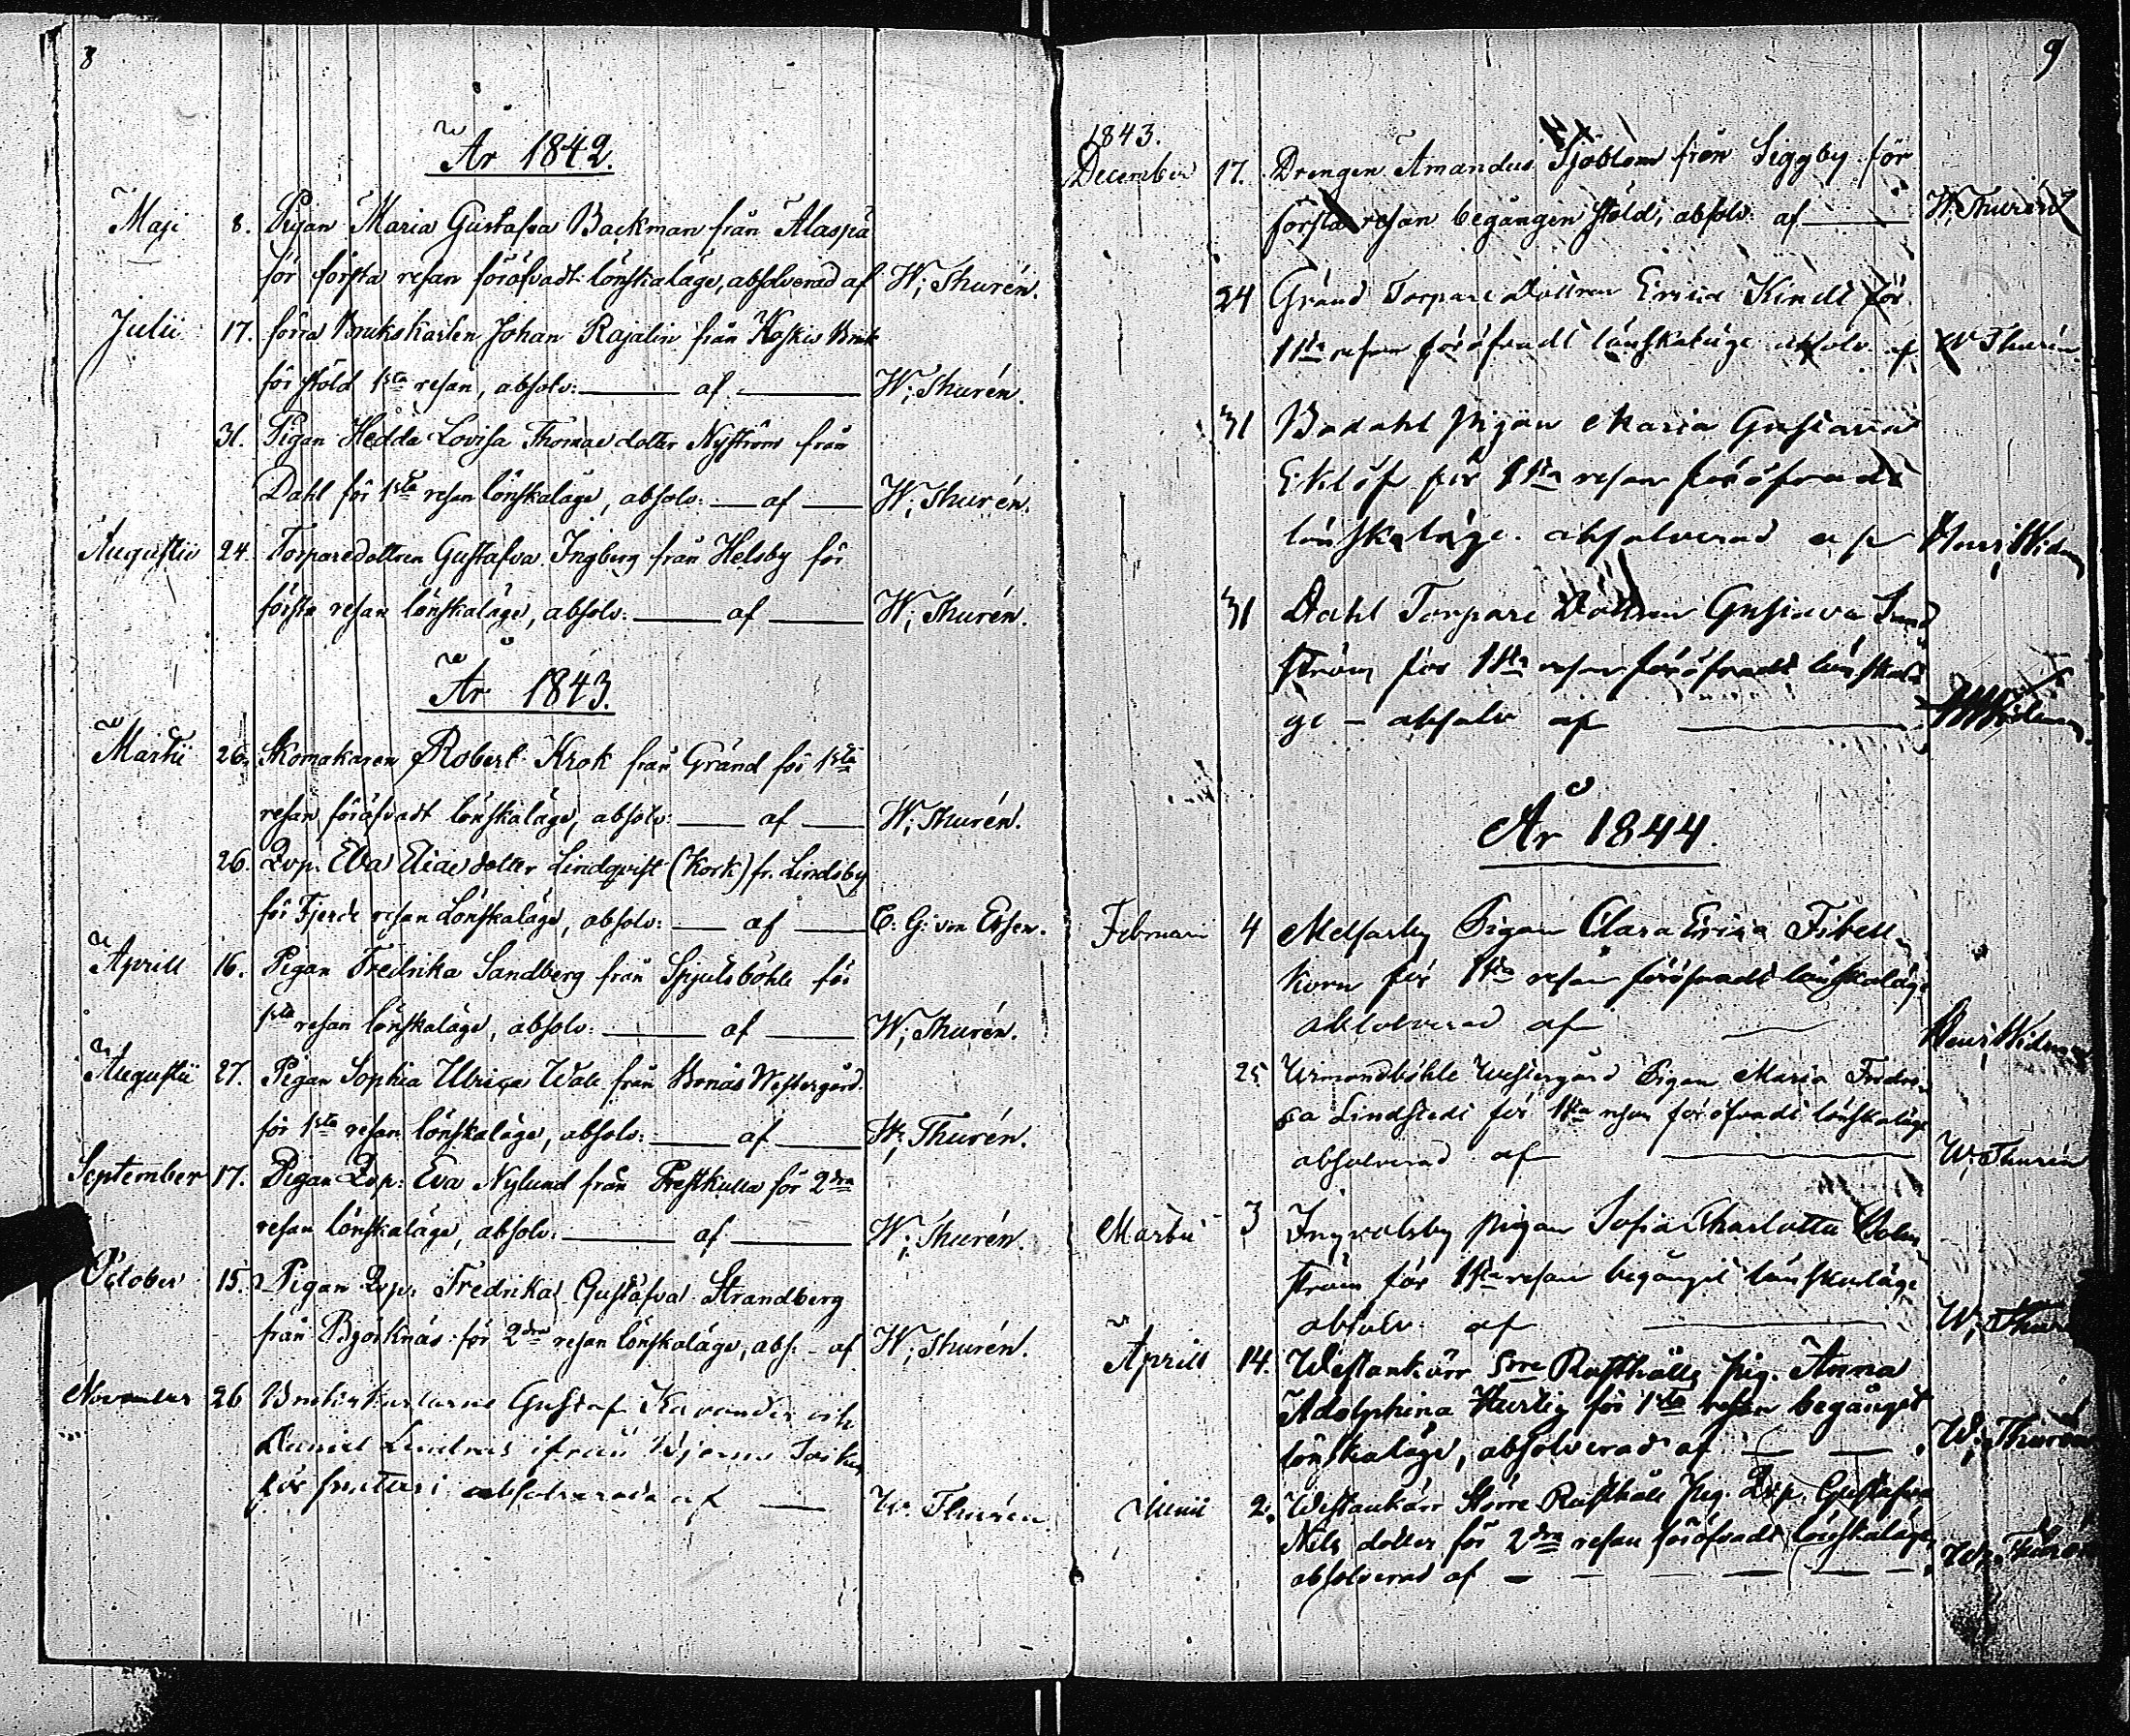 8
År 1842.
Maji 8. Pigan Maria Gustafva Backman från Alaspä
för första resan föröfvadt lönskaläge, absolverad af W; Thurén.
Julii 17. förra Brukskarlen Johan Rajalin från Koskis Bruk
för stöld 1sta resan, absolv: — af — W; Thurén.
31. Pigan Hedda Lovisa Thomae dotter Nyström från
Dahl för 1sta resan lönskaläge, absolv: — af — W; Thurén.
Augustii 24. Torparedottren Gustafva Ingberg från Helsby för
första resan lönskaläge, absolv: — af — W; Thurén.
År 1843.
Martii 26. Skomakaren Robert Krok från Gränd för 1sta
resan föröfvadt lönskaläge, absolv: — af — W; Thurén.
26. Qvp. Eva Eliae dotter Lindqvist (Kork) fr. Lindsby
för Fjerde resan Lönskaläge, absolv: — af — C: G: von Essen.
Aprill 16. Pigan Fredrika Sandberg från Spjulsböhle för
1sta resan lönskaläge, absolv: — af — W; Thurén.
Augustii 27. Pigan Sophia Ulrica Wall från Bonäs Westergård
för 1sta resan lönskaläge, absolv: — af — W; Thurén.
September 17. Pigan Qvp: Eva Nylund från Prestkulla för 2dra
resan lönskaläge, absolv: — af — W; Thurén.
October 15. Pigan Qvp. Fredrika Gustafva Strandberg
från Björknäs för 2dra resan lönskaläge, abs: – af W; Thurén.
November 26 Brukskarlarne Gustaf Kavander och
Daniel ifrån
för absolverade af — W. Thurén
9
1843.
December 17. Drengen Amandus Sjöblom från Siggby för
första resan begången stöld, absolv. af — W. Thurén
24 Gränd Torpare Dottren Erica Kindt för
1sta resan föröfvadt lönskaläge absolv. af W Thurén
31 Badahl pigan Maria Gustava
Eklöf för 1sta resan föröfvadt
lönskaläge. absolverad af
31 Dahl Torpare Dottren Gustava Sund
ström för 1sta resan föröfvadt lönskalä
ge – absolv af —
År 1844.
Februari 4 Melsarby Pigan Clara Erica Fibell
korn för 1sta resan föröfvadt lönskaläge
absolverad af
25 Wermondböhle Westergård Pigan Maria Fredri
ca Lindstedt för 1sta resan föröfvadt lönskaläge
absolverad af — W. Thurén
Martii 3 Ingvalsby pigan Sofia Charlotta
ström för 1sta resan begånget lönskaläge
absolv. af — W; Thurén
Aprill 14. Westankärr Rusthålls pig. Anna
Adolphina Hurtig för 1sta resan begånget
lönskaläge, absolverad af — — W; Thurén
Junii 2. Westankärr Större Rusthåll Pig. Qvp. Gustafva
Nils dotter för 2dra resan föröfvadt lönskaläge
absolverad af — — — — — W; Thurén